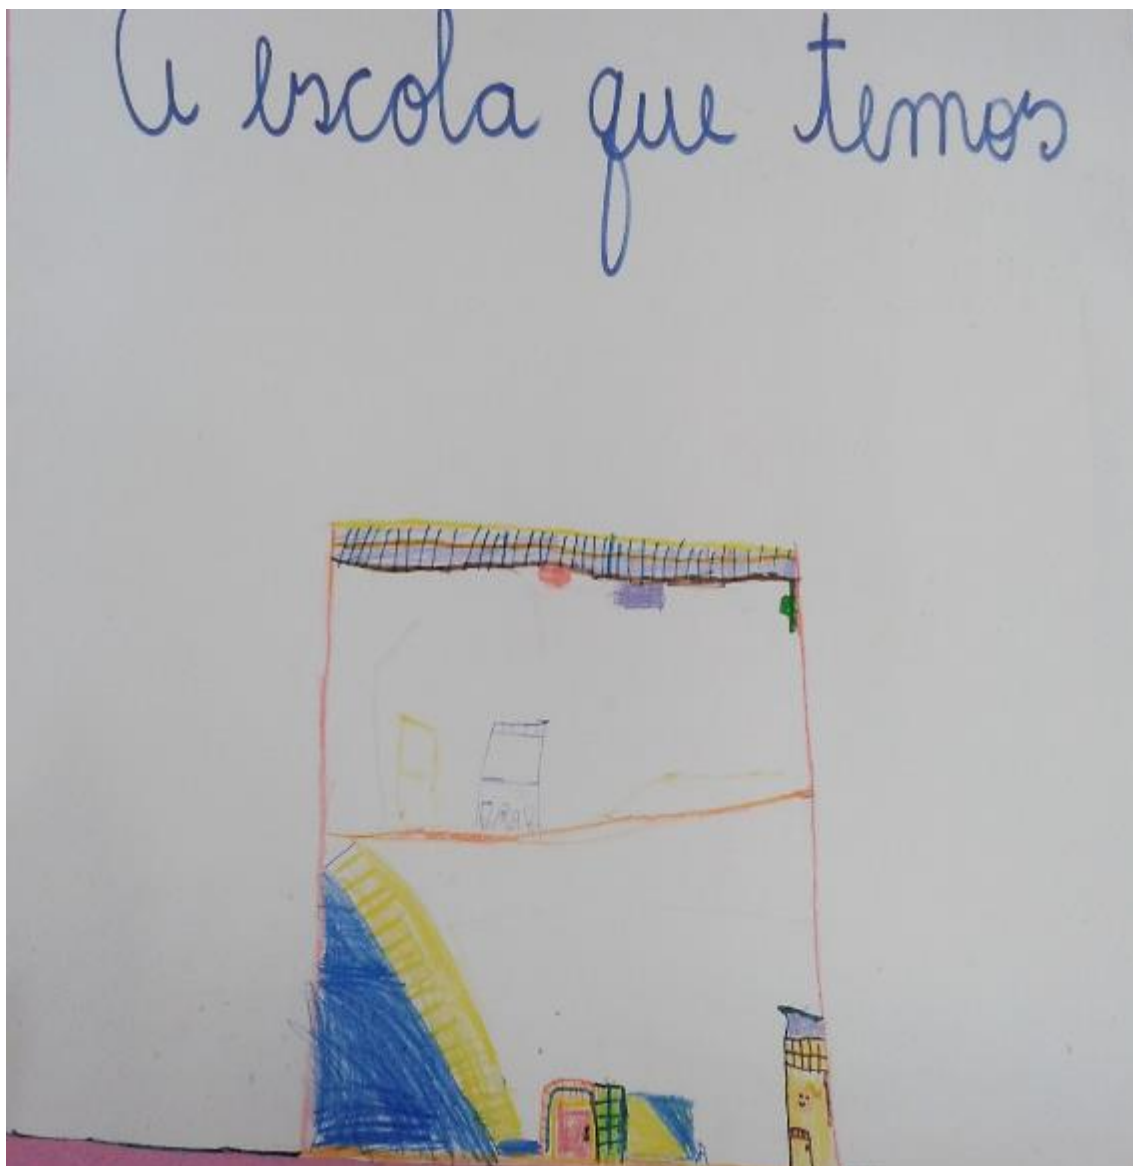 A escola que temos